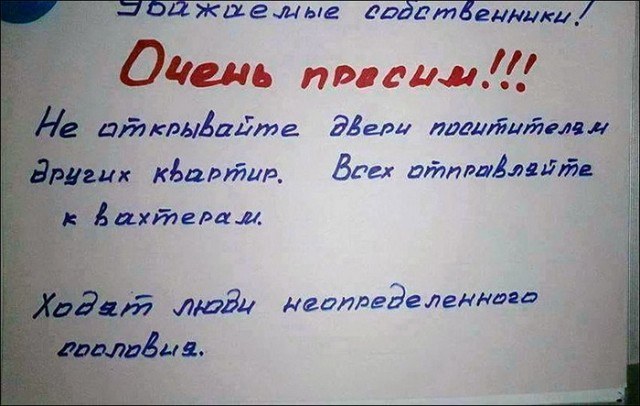 Уважаемые собственники!
Очень просим!!!
Не открывайте двери поситителям
других квартир. Всех отправляйте
к вахтерам.
Ходят люди неопределенного
сословия.